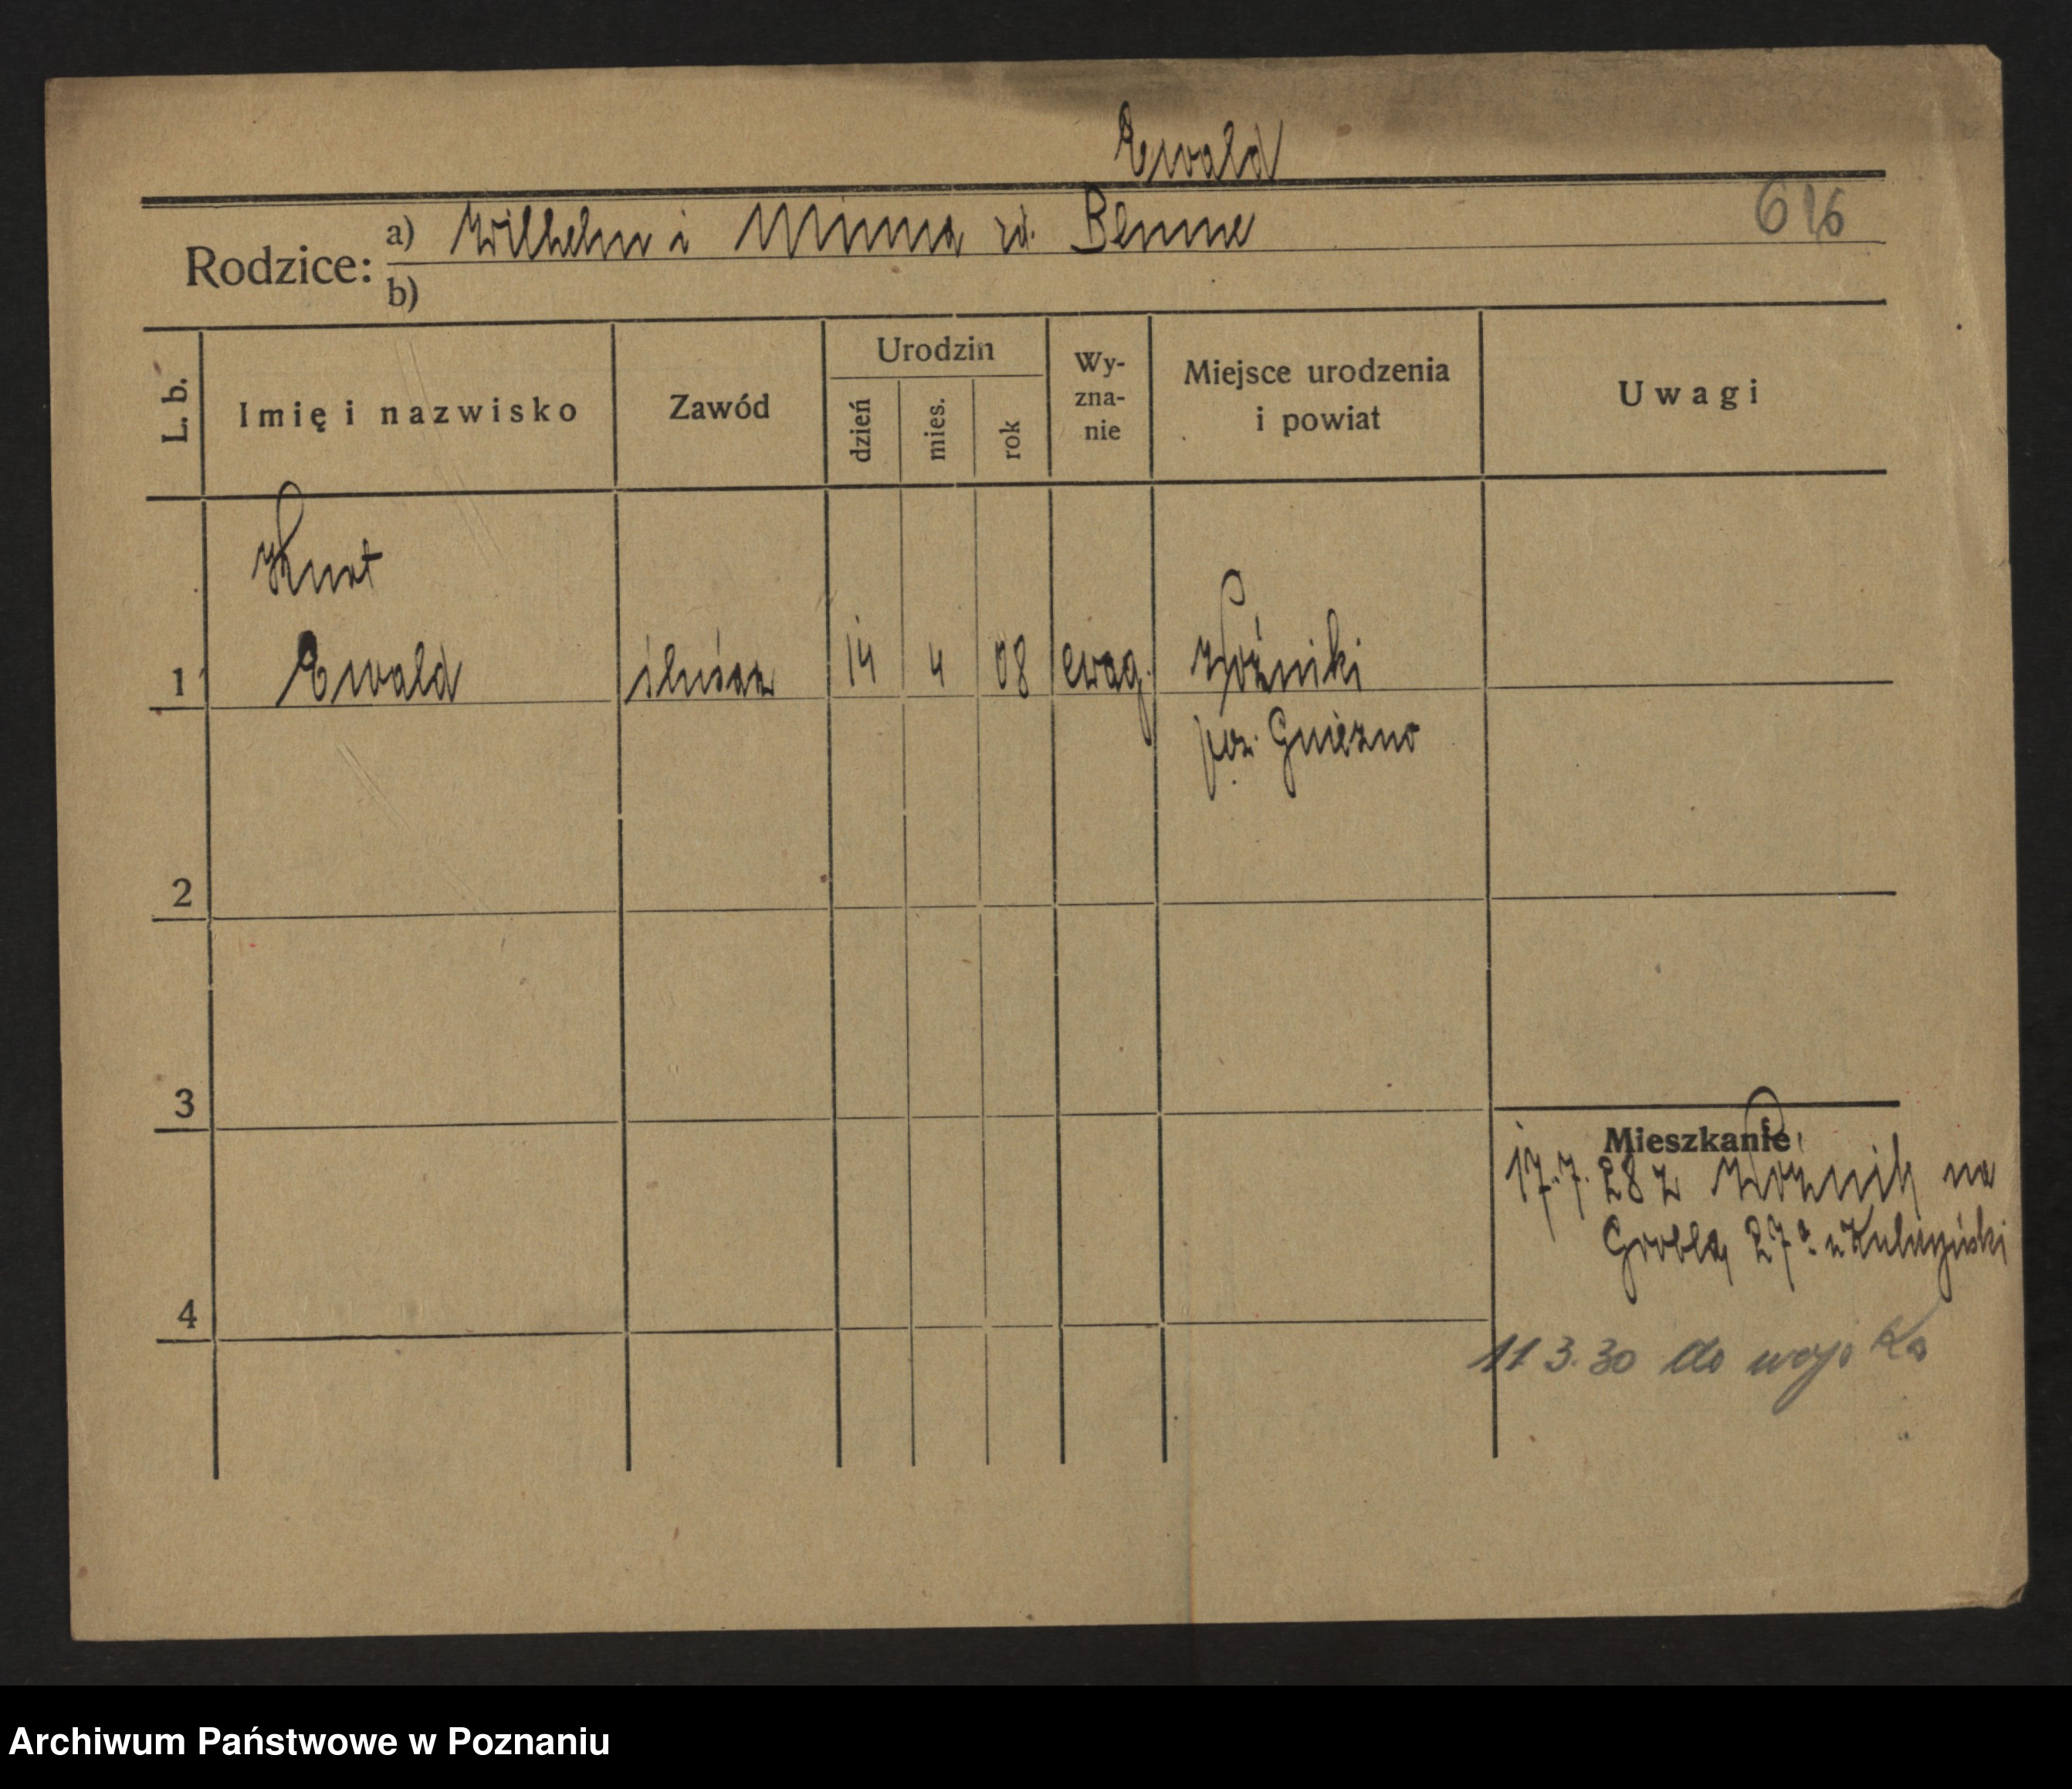 Ewald
616
Rodzice: a) Wilhelm i Minna zd. Benne
b)
L. b.
Imię i nazwisko
Zawód
Urodzin
dzień
mies.
rok
Wy-
zna-
nie
Miejsce urodzenia
i powiat
Uwagi
Kurt
1 Ewald ślusarz 14 4 08 ewag. Woźniki
pow. Gniezno
2
3
Mieszkanie
17.7.28 z Woźnik na
Grobla 27a u
4
11 3.30 do wojska
Archiwum Państwowe w Poznaniu